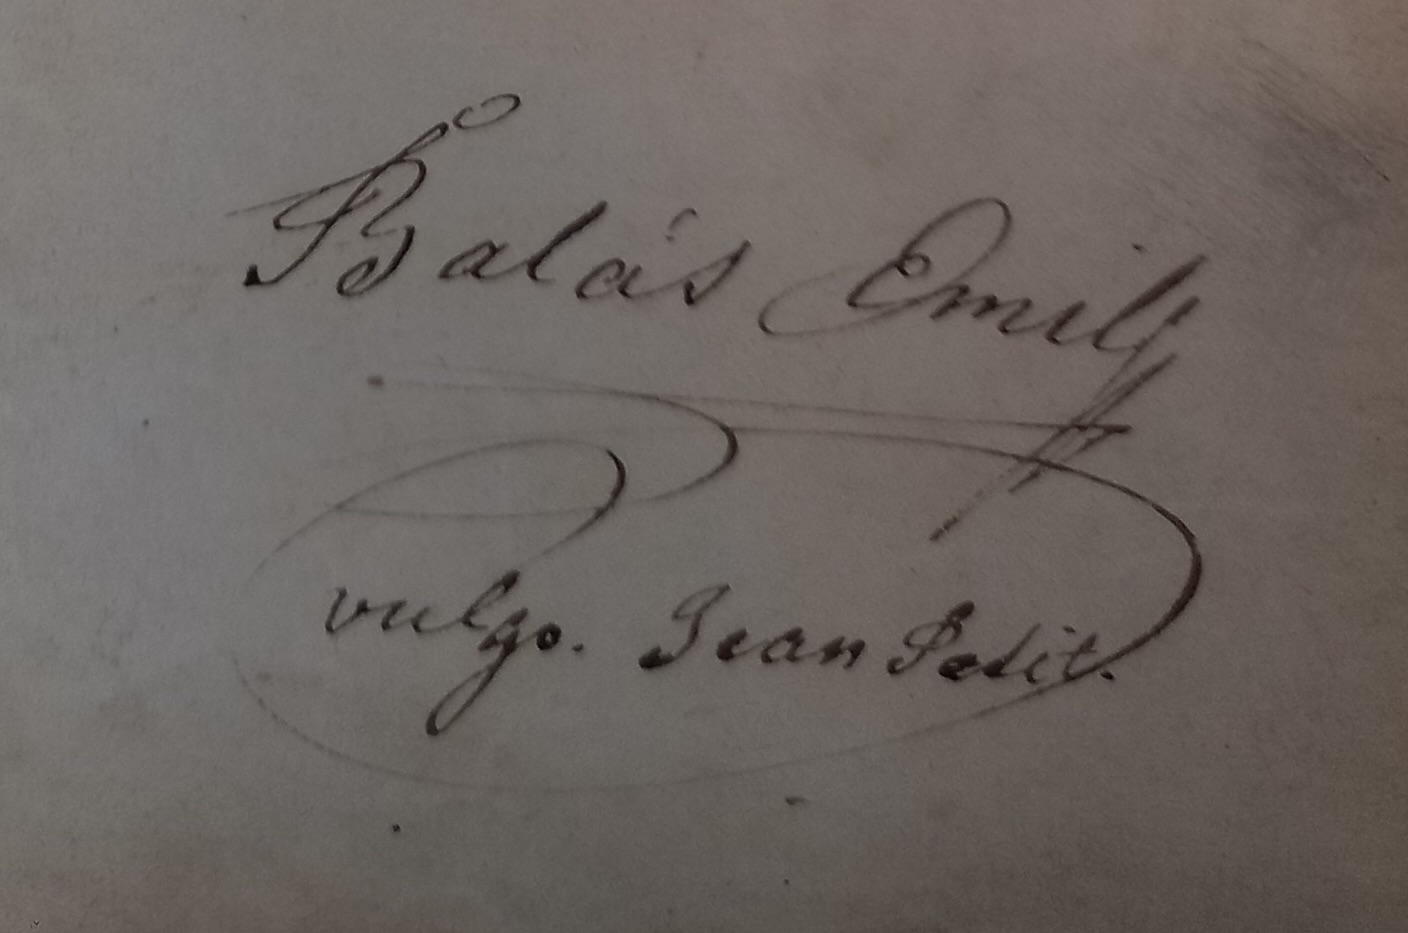 Balás Emil
vulgo. Jean Petit.